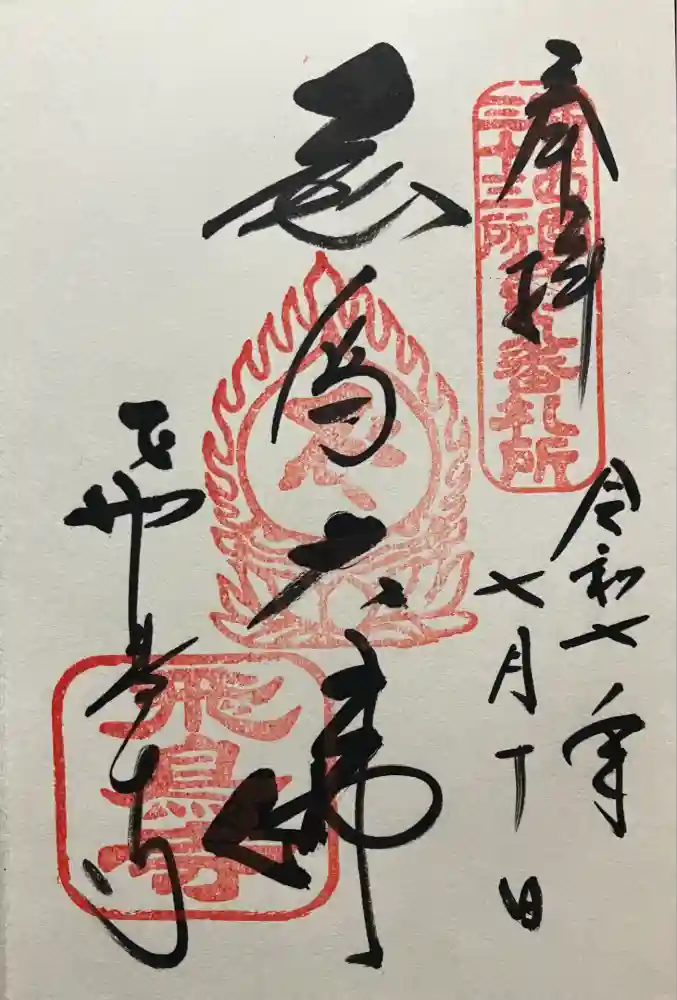 奉拝
新西国
三十三所
第九番札所
令和七年
七月十日
飛鳥大佛
飛鳥寺